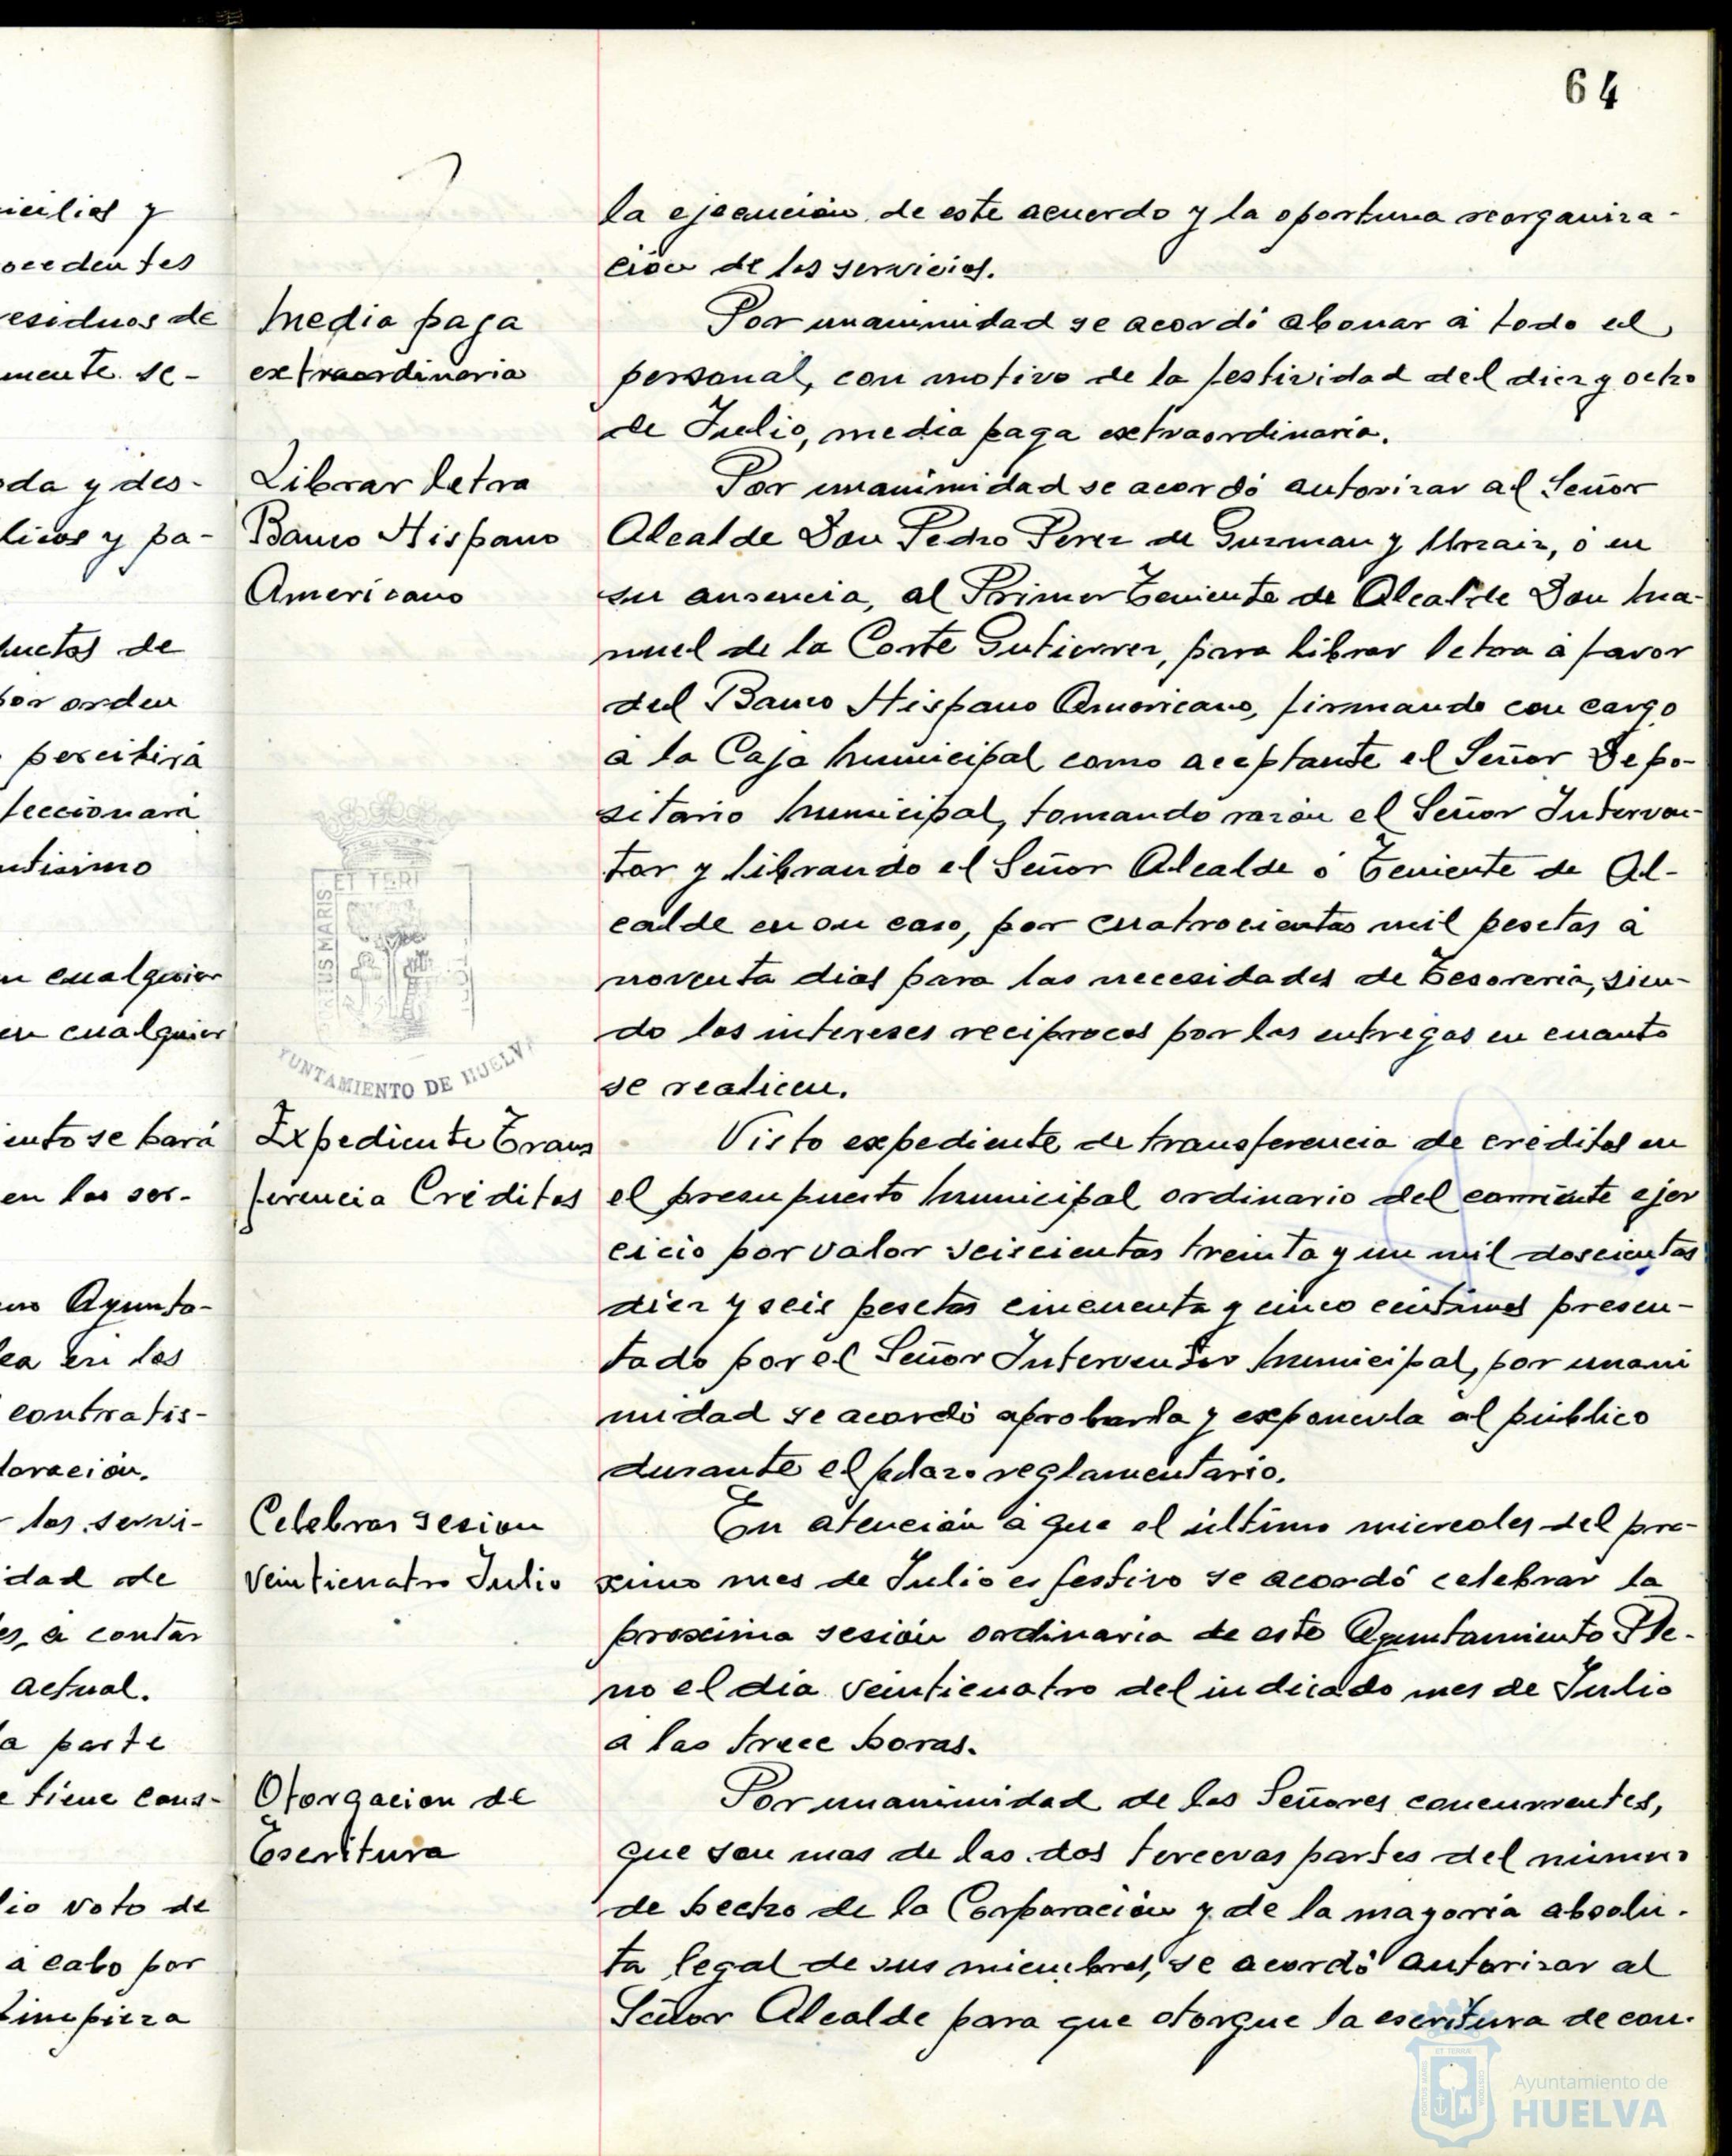 64
icilios y
ocedentes
residuos de
mente se-
oda y des-
licos y pa-
ductos de
por orden
percibirá
feccionará
ntisimo
en cualquier
en cualquier
iento se hará
en los ser-
mo Ayunta-
lea en los
contratis-
loración.
los servi-
idad de
es, a contar
actual.
la parte
e tiene cons-
lio voto de
a cabo por
Limpieza
la ejecución de este acuerdo y la oportuna reorganiza-
ción de los servicios.
Media paga
extraordinaria
Por unanimidad se acordó abonar á todo el
personal, con motivo de la festividad del diez y ocho
de Julio, media paga extraordinaria.
Librar letra
Banco Hispano
Americano
Por unanimidad se acordó autorizar al Señor
Alcalde Don Pedro Perez de Guzman y Urzaiz, ó en
su ausencia, al Primer Teniente de Alcalde Don Ma-
nuel de la Corte Gutierrez, para librar letra á favor
del Banco Hispano Americano, firmando con cargo
á la Caja Municipal como aceptante el Señor Depo-
sitario Municipal, tomando razón el Señor Interven-
tor y librando el Señor Alcalde ó Teniente de Al-
calde en su caso, por cuatrocientas mil pesetas á
noventa dias para las necesidades de Tesoreria, sien-
do los intereses reciprocos por las entregas en cuanto
se realicen.
ET TERR
PORTUS MARIS
YUNTAMIENTO DE HUELVA
Expediente Trans
ferencia Créditos
Visto expediente de transferencia de créditos en
el presupuesto Municipal ordinario del corriente ejer
cicio por valor seiscientas treinta y un mil doscientas
diez y seis pesetas cincuenta y cinco centimos presen-
tado por el Señor Interventor Municipal, por unani
midad se acordó aprobarla y exponerla al público
durante el plazo reglamentario.
Celebrar sesion
veinticuatro Julio
En atención á que el último miercoles del pro-
ximo mes de Julio es festivo se acordó celebrar la
proxima sesión ordinaria de este Ayuntamiento Ple-
no el dia veinticuatro del indicado mes de Julio
a las trece horas.
Otorgacion de
Escritura
Por unanimidad de los Señores concurrentes,
que son mas de las dos terceras partes del número
de hecho de la Corporación y de la mayoría absolu-
ta legal de sus miembros, se acordó autorizar al
Señor Alcalde para que otorgue la escritura de con-
Ayuntamiento de
HUELVA